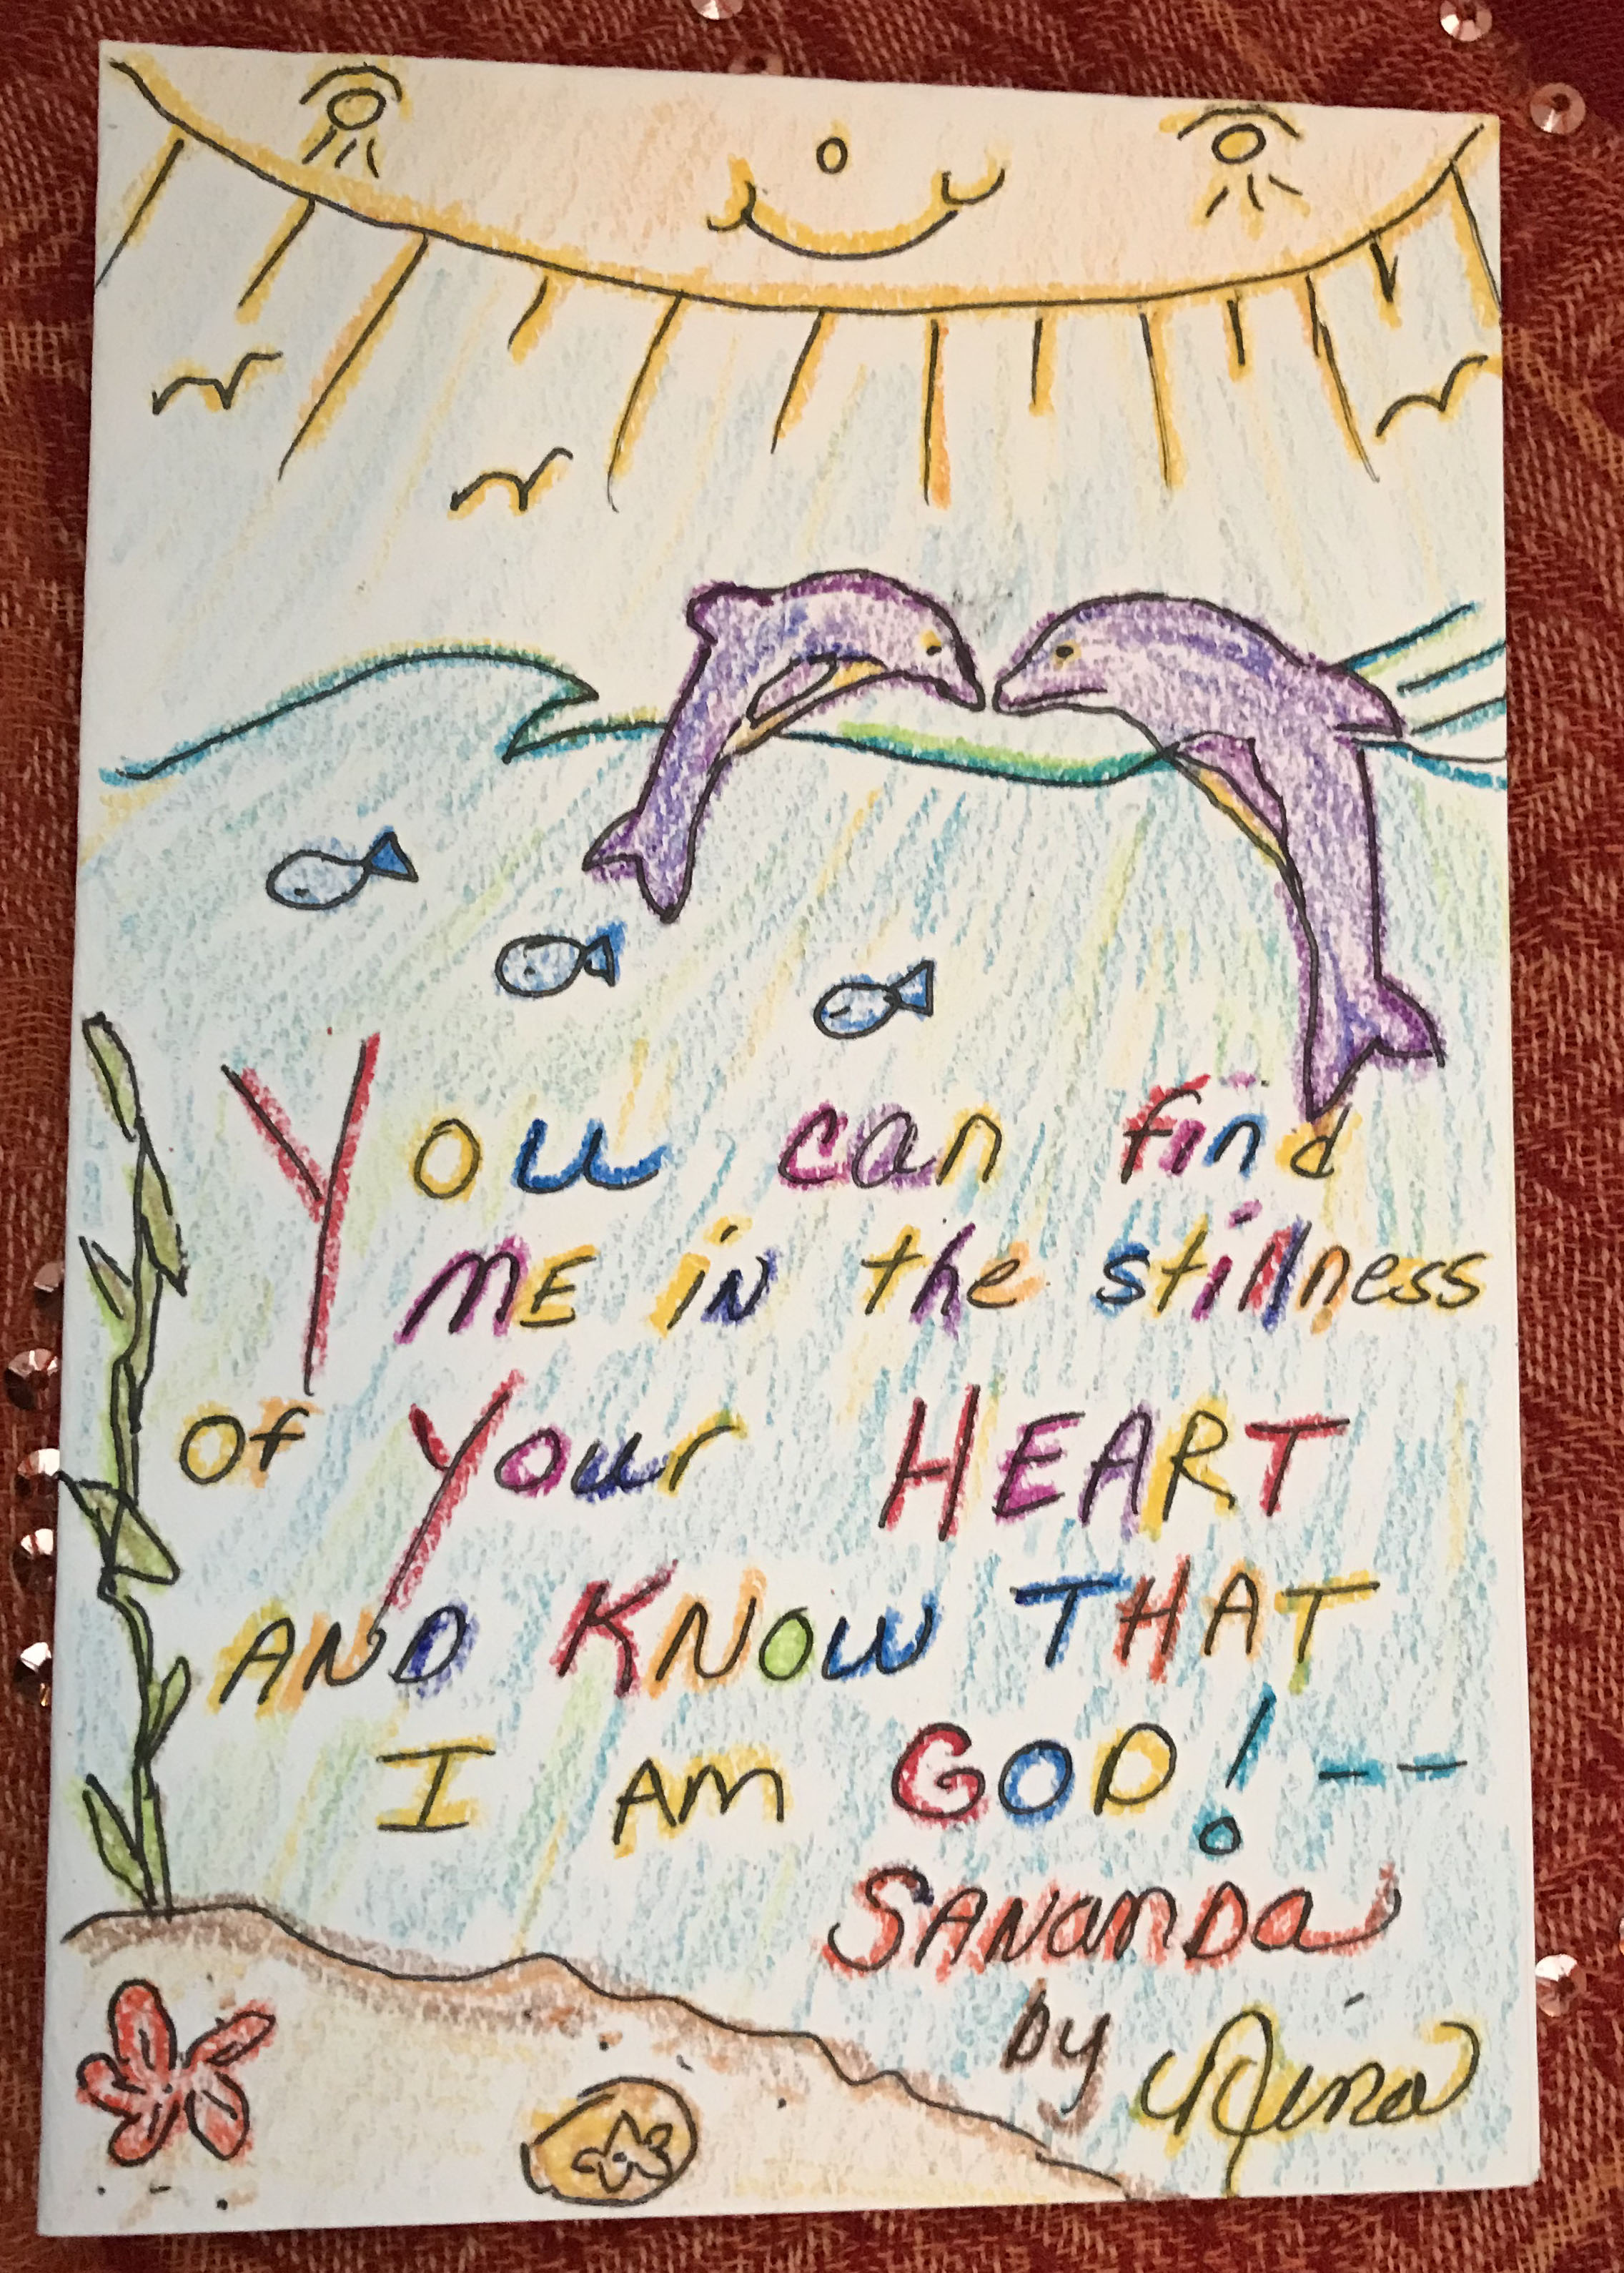 You can find
ME in the stillness
Of Your HEART
AND KNOW THAT
I AM GOD! --
SANanDa
by Nina